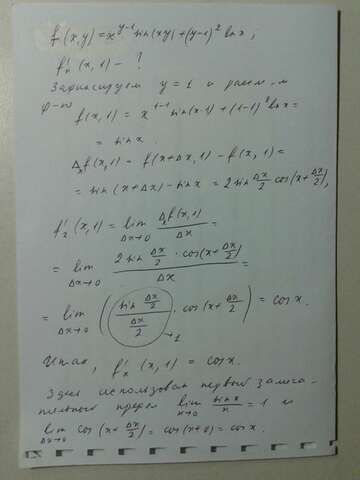 f(x,y) = x^{y-1} sin(xy) + (y-1)^2 ln x,
f'_x (x, 1) - ?
Зафиксируем y = 1 и рассм-м
ф-ю
f(x,1) = x^{1-1} sin(x·1) + (1-1)^2 ln x =
= sin x.
Δ_x f(x,1) = f(x+Δx, 1) - f(x, 1) =
= sin (x+Δx) - sin x = 2 sin \frac{Δx}{2} cos(x+\frac{Δx}{2}),
f'_x (x, 1) = lim_{Δx→0} \frac{Δ_x f(x,1)}{Δx} =
= lim_{Δx→0} \frac{2 sin \frac{Δx}{2} · cos(x+\frac{Δx}{2})}{Δx} =
= lim_{Δx→0} (\frac{sin \frac{Δx}{2}}{\frac{Δx}{2}} →1 · cos(x+\frac{Δx}{2})) = cos x.
Итак, f'_x (x, 1) = cos x.
Здесь использован первый замеча-
тельный предел lim_{x→0} \frac{sin x}{x} = 1 и
lim_{Δx→0} cos (x+\frac{Δx}{2}) = cos(x+0) = cos x.